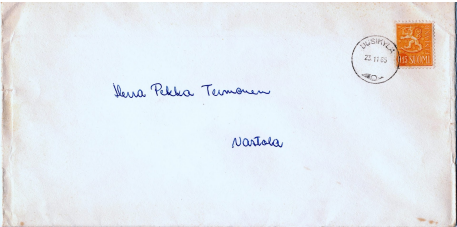 UUSIKYLÄ
SUOMI
Herra Pekka Termonen
Nastola